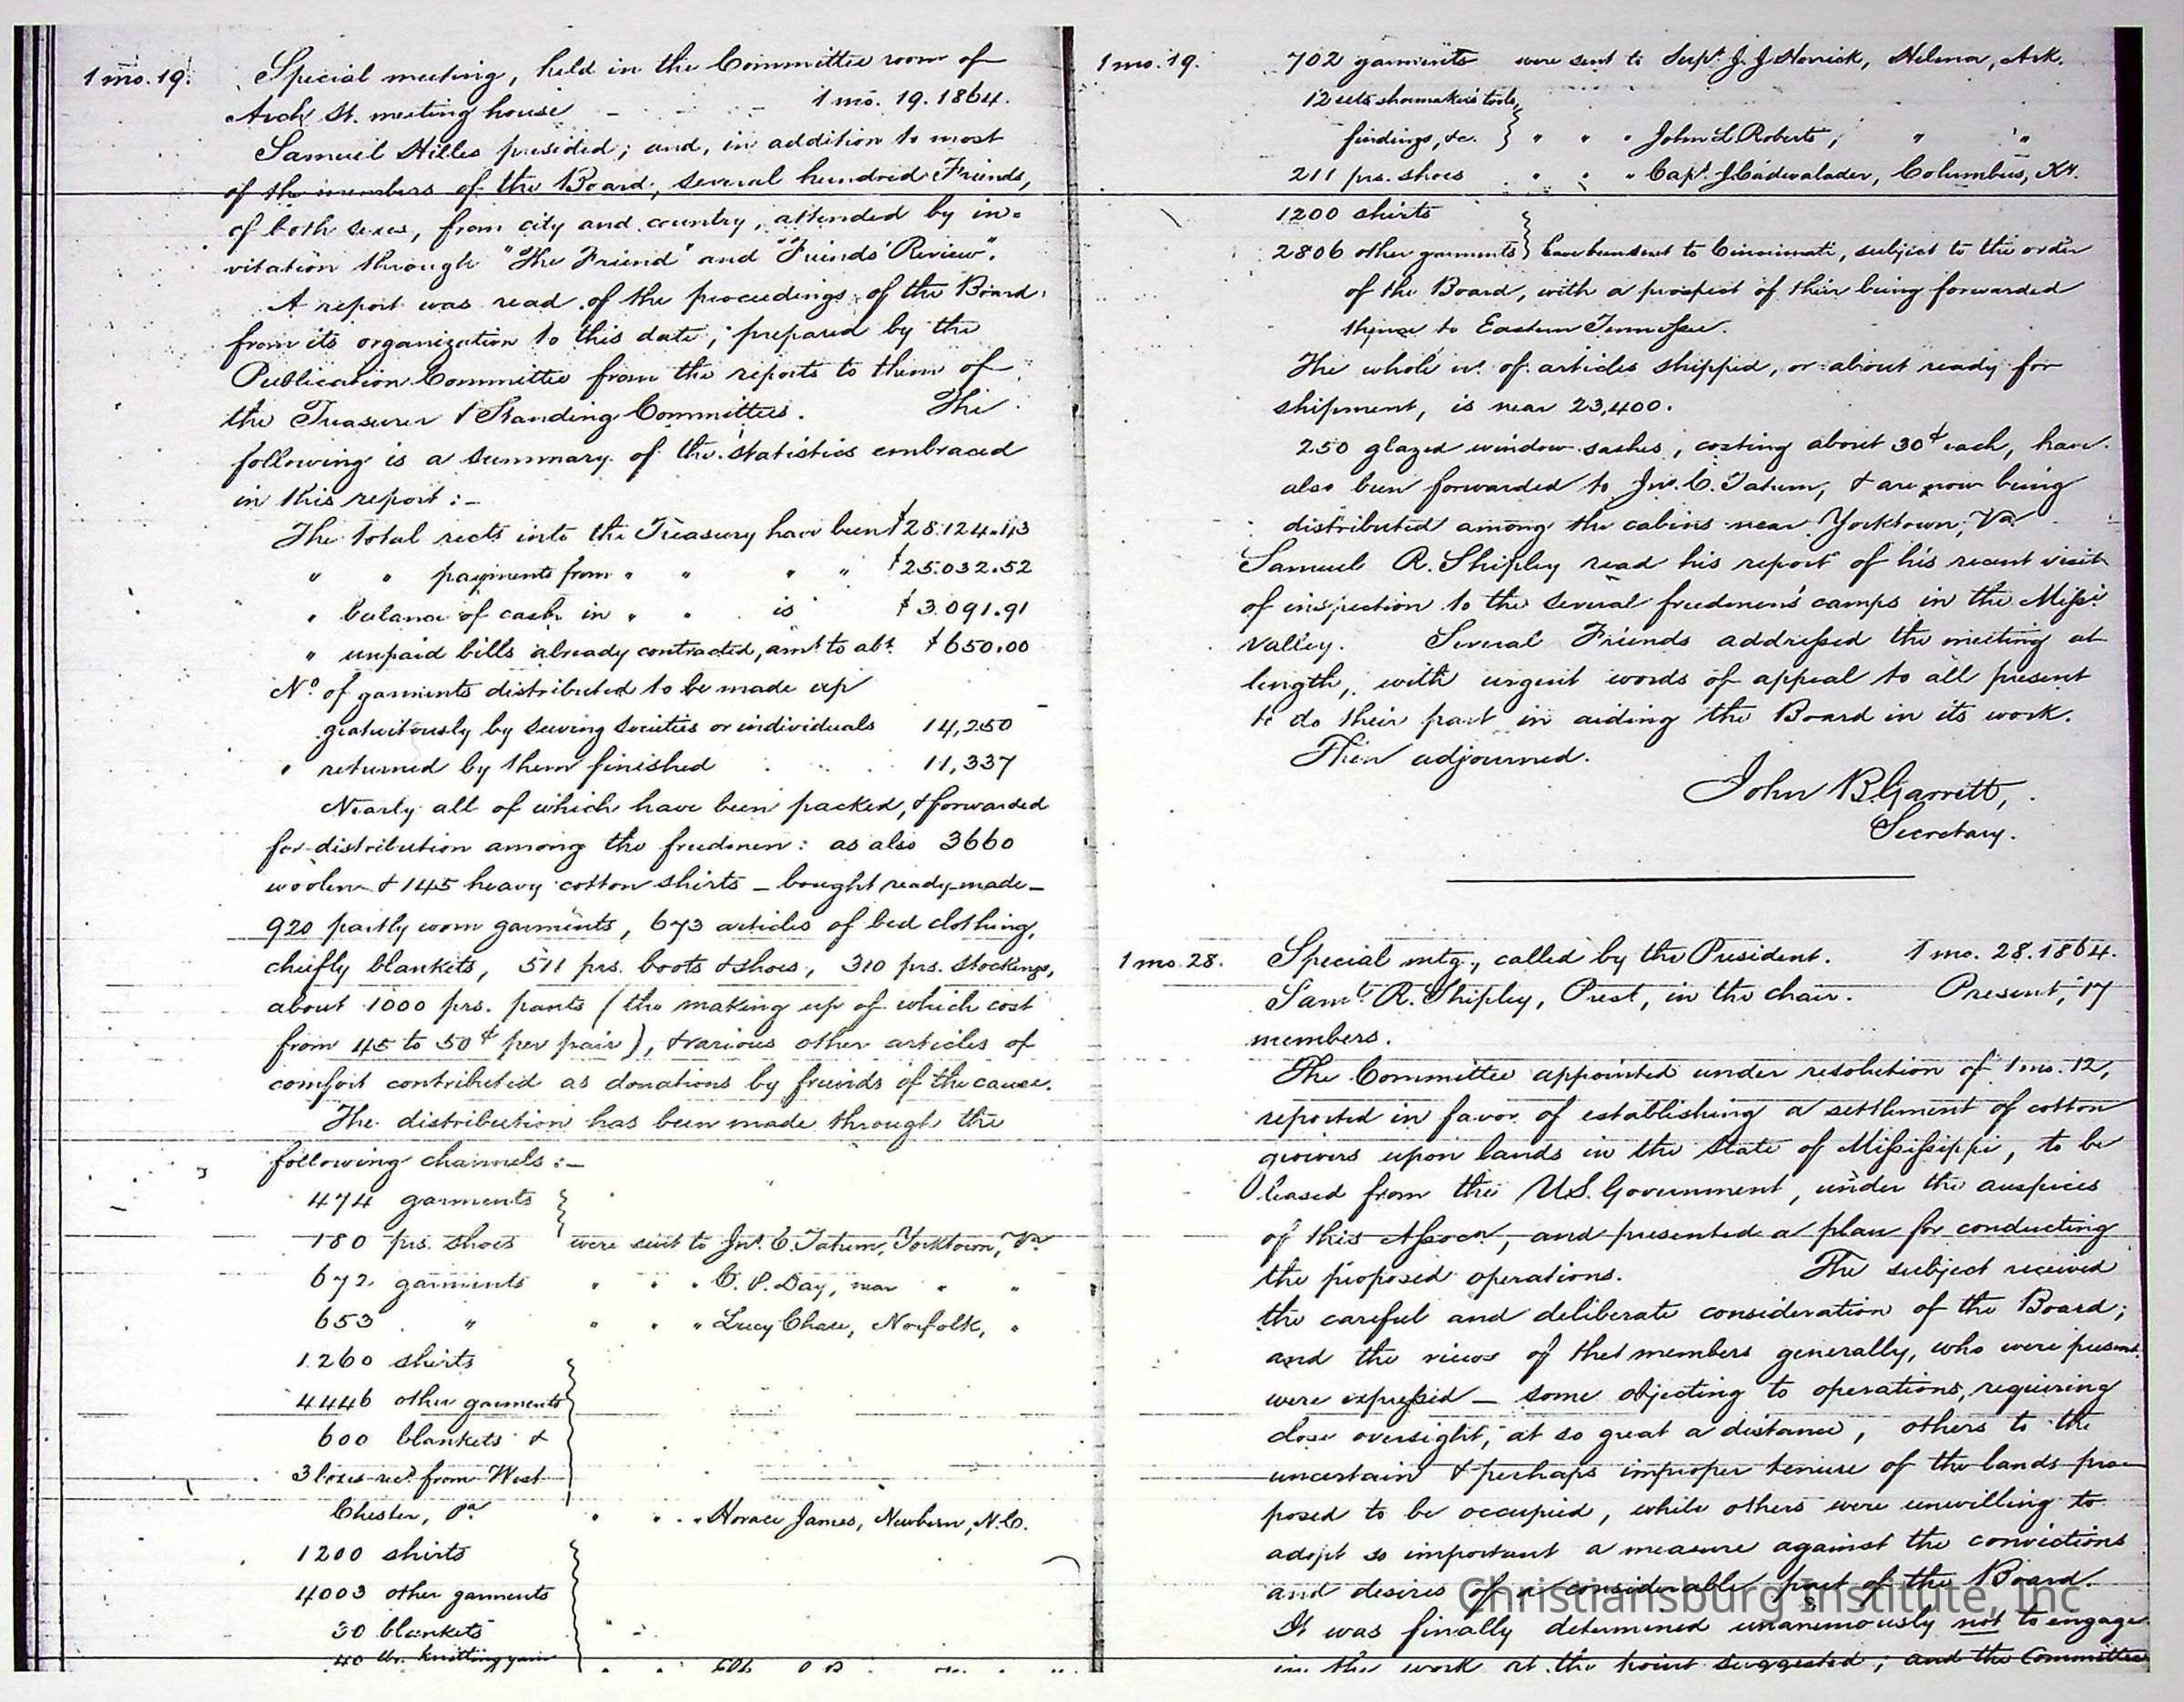 1 mo. 19. Special meeting, held in the Committee room of
Arch St. meeting house - 1 mo. 19. 1864.
Samuel Hilles presided; and, in addition to most
of the members of the Board, several hundred Friends,
of both sexes, from city and country, attended by in=
vitation through "The Friend" and "Friends' Review".
A report was read of the proceedings of the Board
from its organization to this date, prepared by the
Publication Committee from the reports to them of
the Treasurer & Standing Committees. The
following is a summary of the statistics embraced
in this report:-
The total rects into the Treasury have been $28.124.43
" " payments from " " " " $25.032.52
" balance of cash in " " is $3.091.91
" unpaid bills already contracted, amt to abt. $650.00
No. of garments distributed to be made up
gratuitously by sewing societies or individuals 14,250
" returned by them finished . . . 11,337
Nearly all of which have been packed, & forwarded
for distribution among the freedmen: as also 3660
woolen & 145 heavy cotton shirts - bought ready-made -
920 partly worn garments, 673 articles of bed clothing,
chiefly blankets, 511 prs. boots & shoes, 310 prs. stockings,
about 1000 prs. pants (the making up of which cost
from 45 to 50¢ per pair), & various other articles of
comfort contributed as donations by friends of the cause.
The distribution has been made through the
following channels:-
474 garments
180 prs. shoes } were sent to Jno. C. Tatum, Yorktown, Va
672 garments " " " C. P. Day, near " "
653 " " " " Lucy Chase, Norfolk, "
1260 shirts
4446 other garments
600 blankets &
3 boxes recd. from West
Chester, Pa } " " " Horace James, Newbern, N.C.
1200 shirts
4003 other garments
30 blankets
40 lbs. knitting yarn } " "
1 mo. 19. 702 garments were sent to Supt. J. J. Herrick, Helena, Ark.
12 sets shoemakers tools,
findings, &c. } " " " John L Roberts, " "
211 prs. shoes " " " Capt. J Cadwalader, Columbus, Ky.
1200 shirts
2806 other garments } have been sent to Cincinnati, subject to the order
of the Board, with a prospect of their being forwarded
thence to Eastern Tennessee.
The whole no. of articles shipped, or about ready for
shipment, is near 23,400.
250 glazed window sashes, costing about 30¢ each, have
also been forwarded to Jno. C. Tatum, & are now being
distributed among the cabins near Yorktown, Va
Samuel R. Shipley read his report of his recent visit
of inspection to the several freedmen's camps in the Missi
Valley. Several Friends addressed the meeting at
length, with urgent words of appeal to all present
to do their part in aiding the Board in its work.
Then adjourned.
John B Garrett,
Secretary.
1 mo. 28. Special mtg., called by the President. 1 mo. 28. 1864.
Saml. R. Shipley, Prest, in the chair. Present, 17
members.
The Committee appointed under resolution of 1 mo. 12,
reported in favor of establishing a settlment of cotton
growers upon lands in the State of Mississippi, to be
leased from the U.S. Government, under the auspices
of this Assocn, and presented a plan for conducting
the proposed operations. The subject received
the careful and deliberate consideration of the Board;
and the views of the members generally, who were present
were expressed - some objecting to operations, requiring
close oversight, at so great a distance, others to the
uncertain & perhaps improper tenure of the lands pro=
posed to be occupied, while others were unwilling to
adopt so important a measure against the convictions
and desires of a considerable part of the Board.
It was finally determined unanimously not to engage
in the work at the point suggested; and the Committee
Christiansburg Institute, Inc